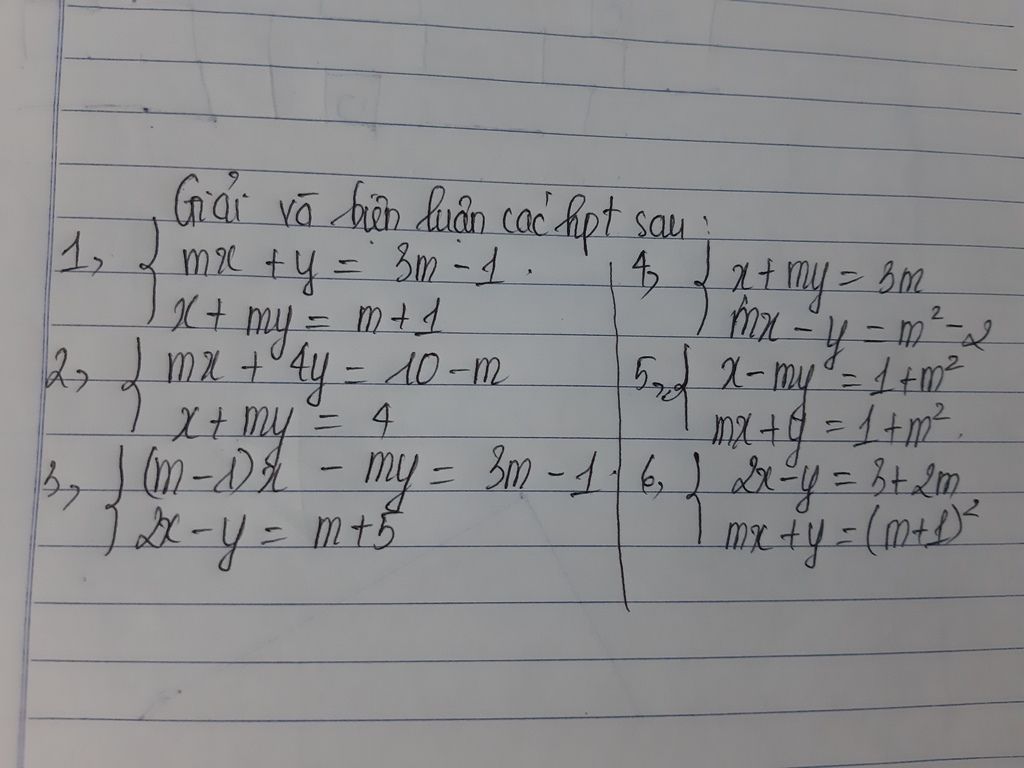 Giải và biện luận các hpt sau:
1, { mx + y = 3m - 1.
x + my = m + 1
2, { mx + 4y = 10 - m
x + my = 4
3, { (m - 1)x - my = 3m - 1.
2x - y = m + 5
4, { x + my = 3m
mx - y = m² - 2
5, { x - my = 1 + m²
mx + y = 1 + m².
6, { 2x - y = 3 + 2m
mx + y = (m + 1)²